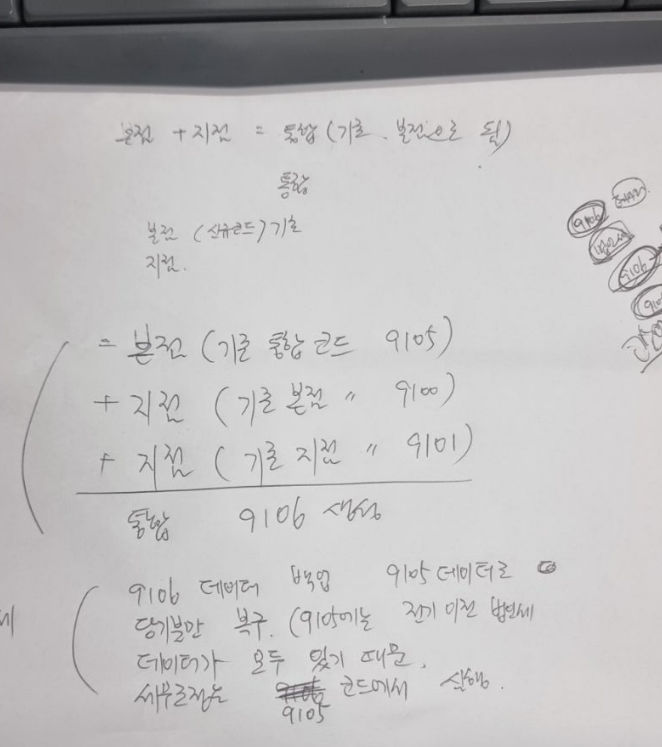 본점 + 지점 = 통합 (기존. 본점으로 됨)
통합
본점 (신규코드) 기존
지점.
= 본점 (기존 통합 코드 9105)
+ 지점 (기존 본점 〃 9100)
+ 지점 ( 기존 지점 〃 9101)
통합 9106 생성
9106 데이터 백업 9105 데이터로
당기분만 복구. (9105에는 전기 이전 법인세
데이터가 모두 있기 때문.
세무조정는 코드에서 실행.
9105
9106
9106